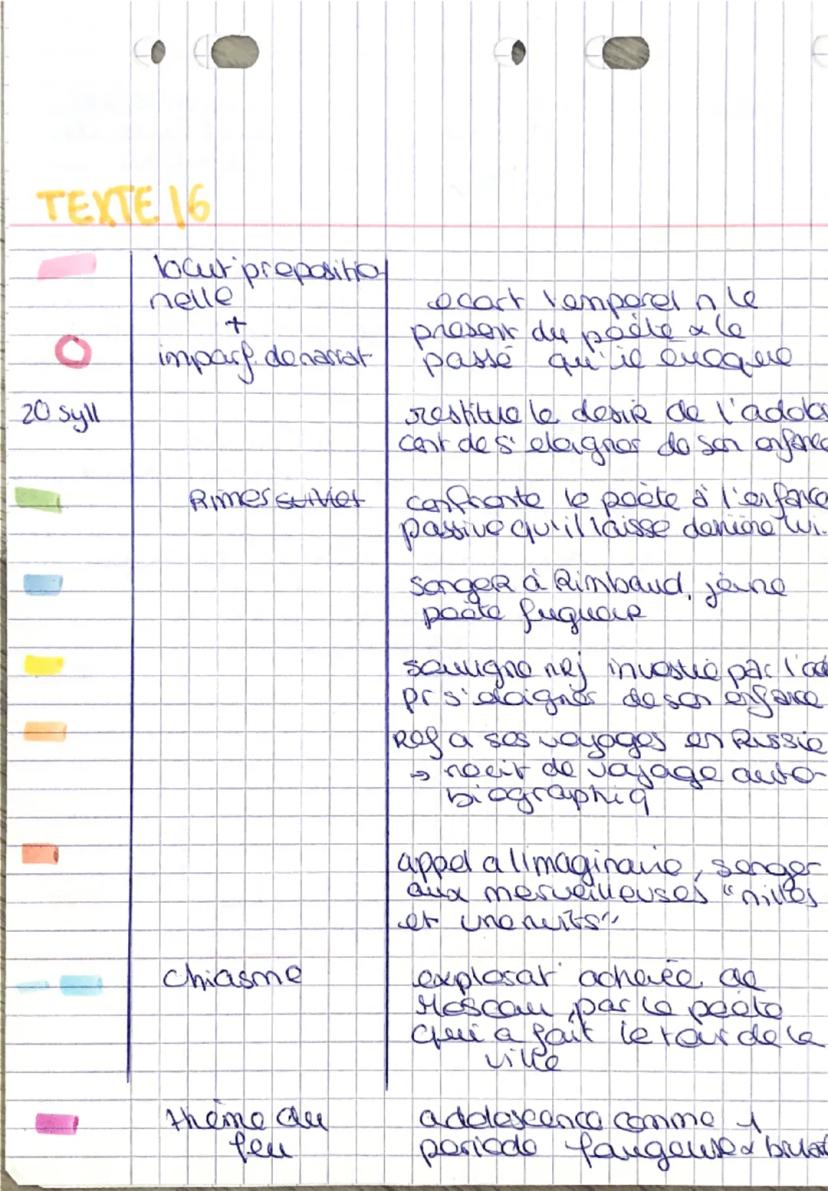 TEXTE 16
locut° prepositio
nelle
+
imparf. de narrat°
ecart temporel n le
present du poète & le
passé qu'il evoque
20 syll
restitue le desir de l'adoles
cent de s'eloigner de son enfance
Rimes suivies
confronte le poète à l'enfance
passive qu'il laisse derrière lui.
songer à Rimbaud, jeune
poète fugueur
souligne nrj investie par l'ad
pr s'eloigner de son enfance
Ref a ses voyages en Russie
→ recit de voyage auto-
biographiq
appel a l'imaginaire, songer
aux merveilleuses "milles
et une nuits"
Chiasme
explorat° achevée de
Moscou, par le poète
qui a fait le tour de la
ville
thème du
feu
adolescence comme 1
periode fougeuse & brulat